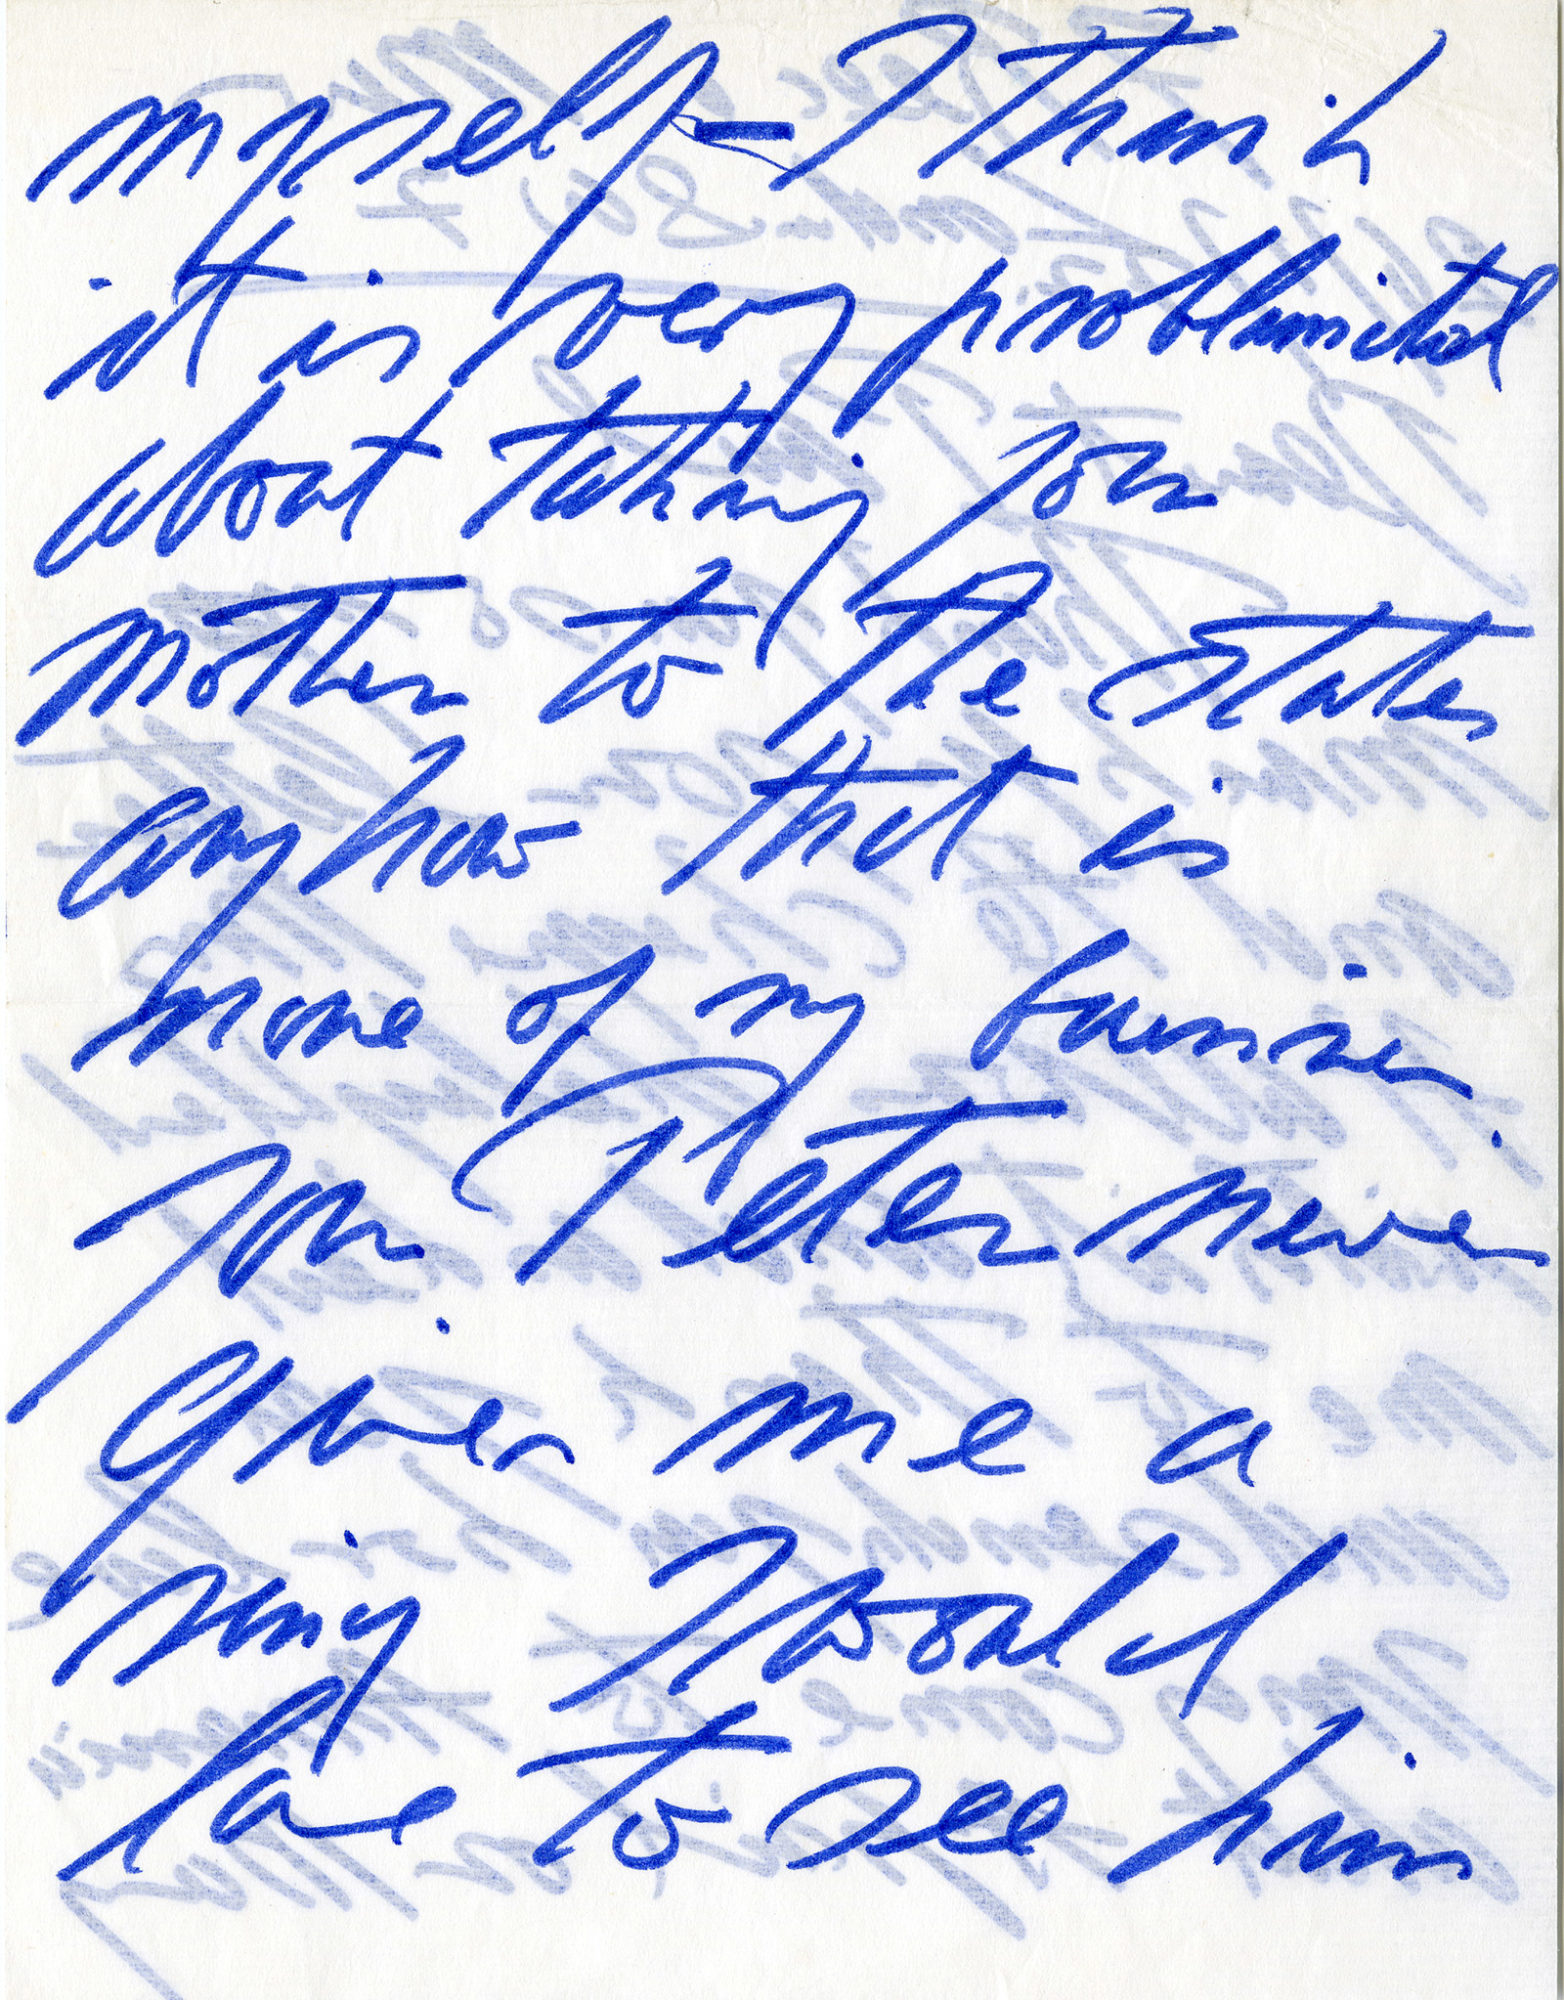 myself – I think
it is very problimical
about taking your
mother to the States
anyhow that is
none of my business.
your Peter never
gives me a
ring I would
love to see him